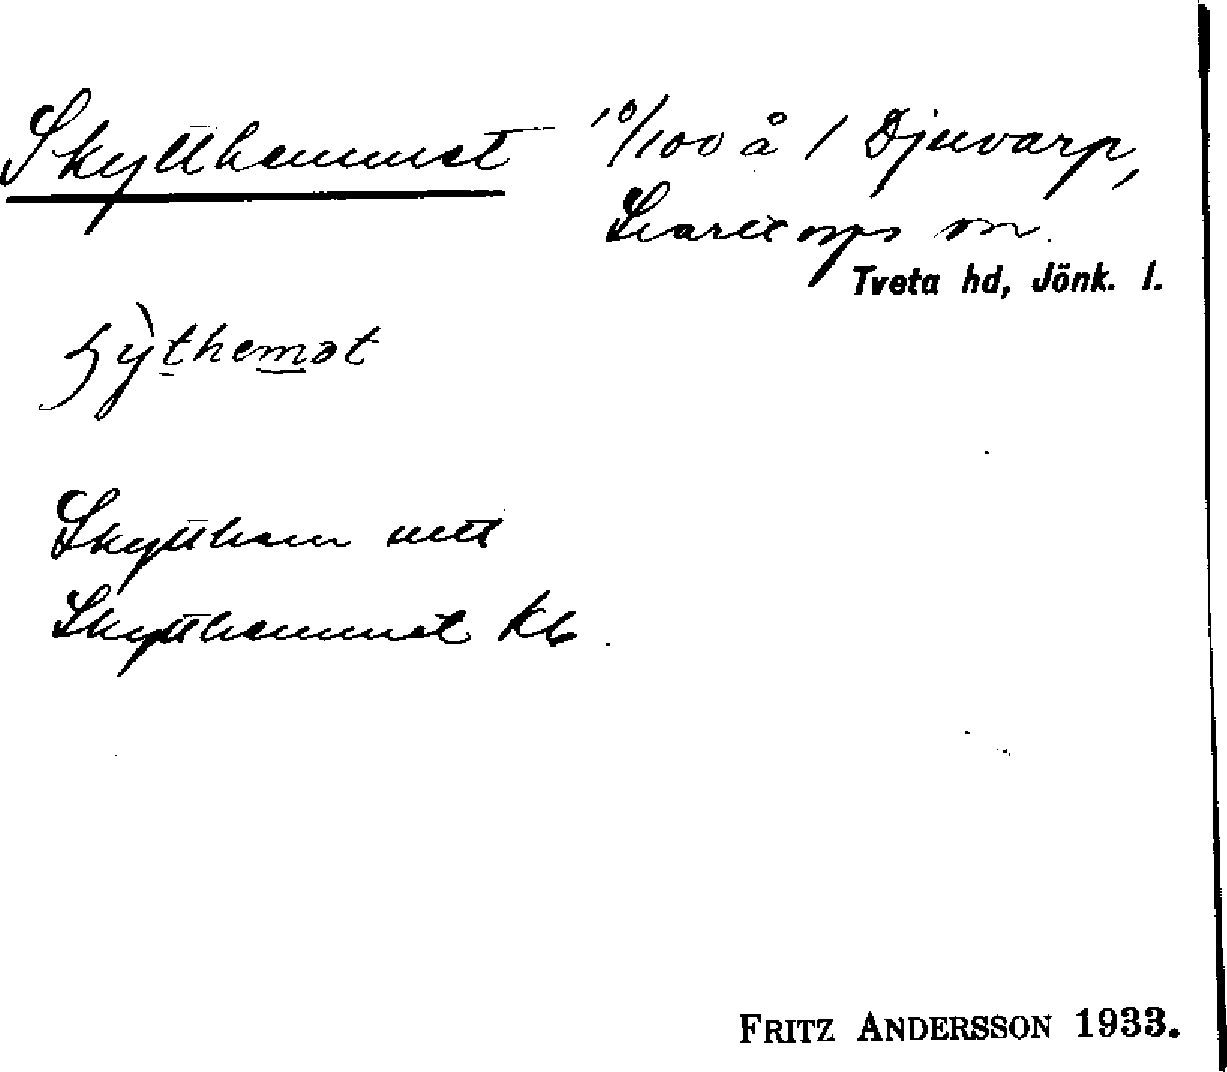 Skytthemmet 10/100 å 1 Djuvarp,
Svarttorps sn.
Tveta hd, Jönk. l.
ʃỳthemət
Skytthem utt
Skytthemmet Kb
FRITZ ANDERSSON 1933.